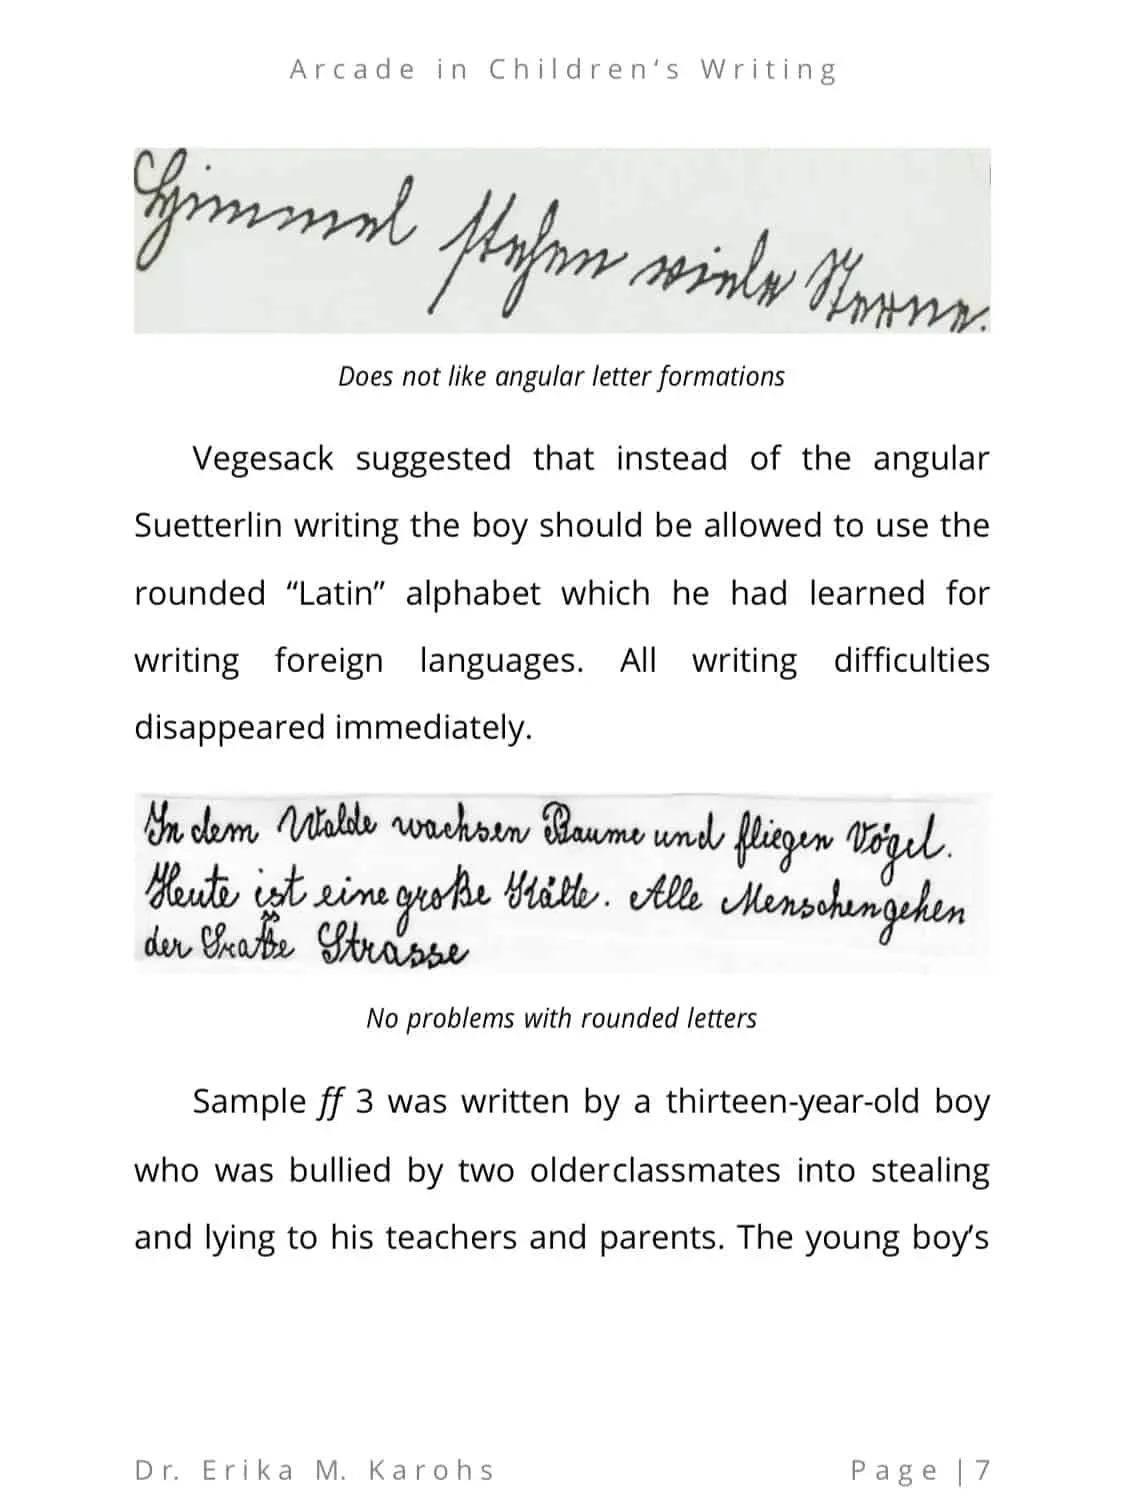 Arcade in Children‘s Writing
Himmel stehen viele Sterne.
Does not like angular letter formations
Vegesack suggested that instead of the angular
Suetterlin writing the boy should be allowed to use the
rounded “Latin” alphabet which he had learned for
writing foreign languages. All writing difficulties
disappeared immediately.
In dem Walde wachsen Baume und fliegen Vögel.
Heute ist eine große Kälte. Alle Menschen gehen
der Strasse
No problems with rounded letters
Sample ff 3 was written by a thirteen-year-old boy
who was bullied by two olderclassmates into stealing
and lying to his teachers and parents. The young boy’s
Dr. Erika M. Karohs Page | 7